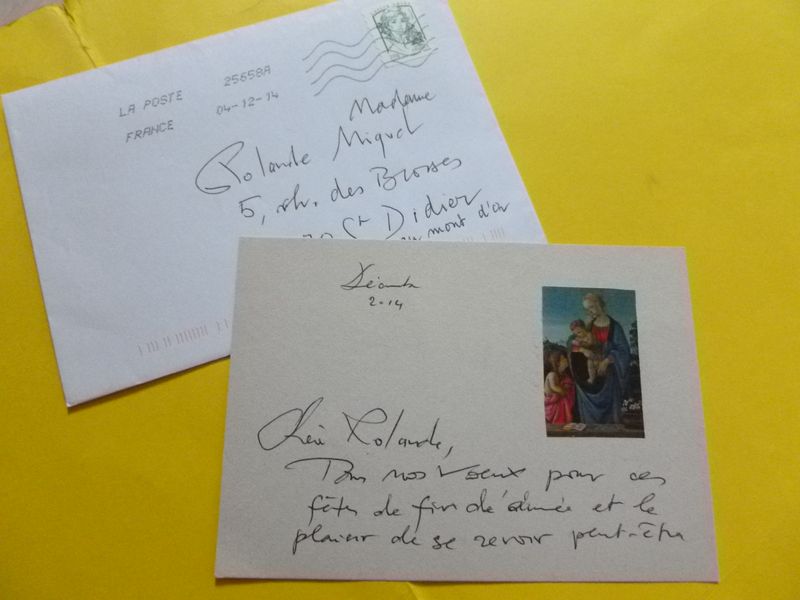 LA POSTE 25658A
FRANCE 04-12-14
Madame
Rolande Miguet
5, ch. des Brosses
St Didier
au mont d'or
Décembre
2014
Chère Rolande,
Tous nos voeux pour ces
fêtes de fin d'année et le
plaisir de se revoir peut-être